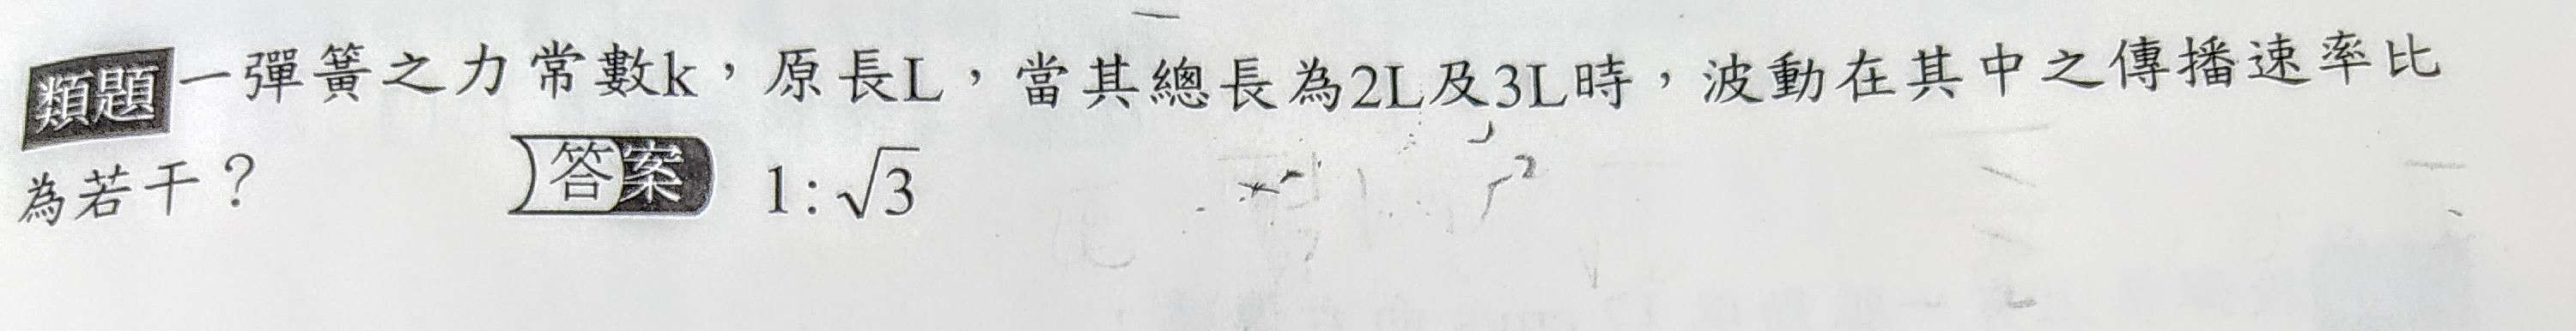 類題 一彈簧之力常數k，原長L，當其總長為2L及3L時，波動在其中之傳播速率比
為若干？ 答案 1:√3